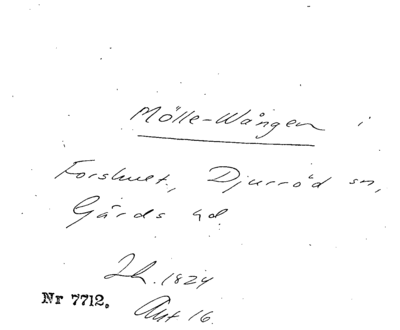 Mölle-Wången i
Forshult, Djurröd sn,
Gärds hd.
Lh. 1824
Nr 7712.
Akt 16.